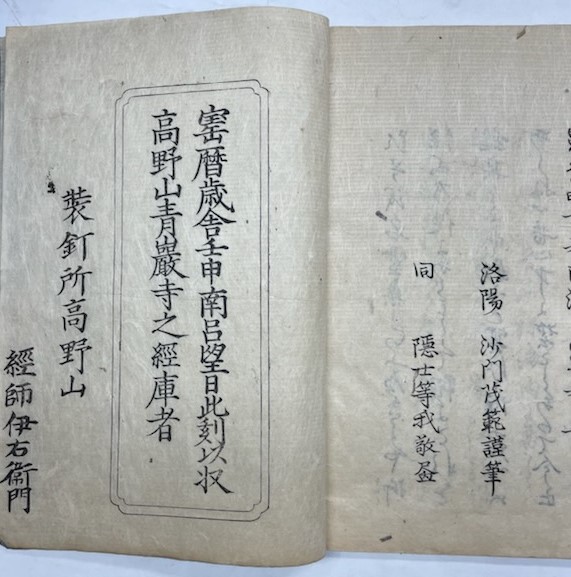 洛陽 沙門茂範謹筆
同 隱士等我敬畵
寚曆歳舎壬申南呂望日此刻以収
高野山青巖寺之經庫者
裝釘所高野山
經師伊右衞門